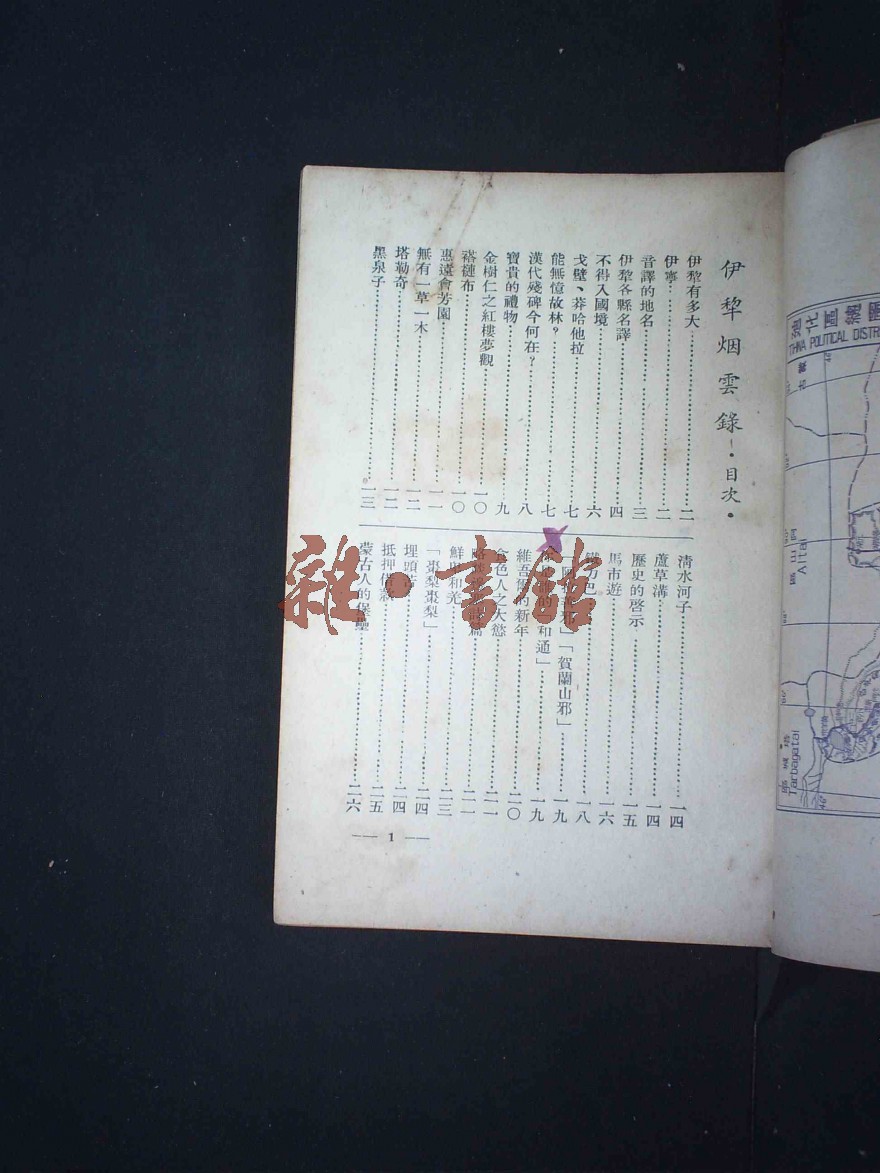 伊犂烟雲錄—·目次·
伊犂有多大…二
伊寧…二
音譯的地名…三
伊犂各縣名譯…四
不得入國境…六
戈壁、莽哈他拉…七
能無憶故林？…七
漢代殘碑今何在？…八
寶貴的禮物…九
金樹仁之紅樓夢觀…一〇
褡褳布…一〇
惠遠會芳園…一一
無有一草一木…一二
塔勒奇…一二
黑泉子…一三
清水河子…一四
蘆草溝…一四
歷史的啓示…一五
馬市遊…一六
一八
邪」「賀蘭山邪」…一九
和通」…一九
維吾爾的新年…二〇
食色人之大慾…二一
篇…二一
鮮卑和羌…二三
「棗梨棗梨」…二四
埋頭…二四
抵押借薪…二五
蒙古人的堡壘…二六
— 1 —
化區總圖
THNA POLITICAL DISTR
Altai
Tarbagatai
雜·書館